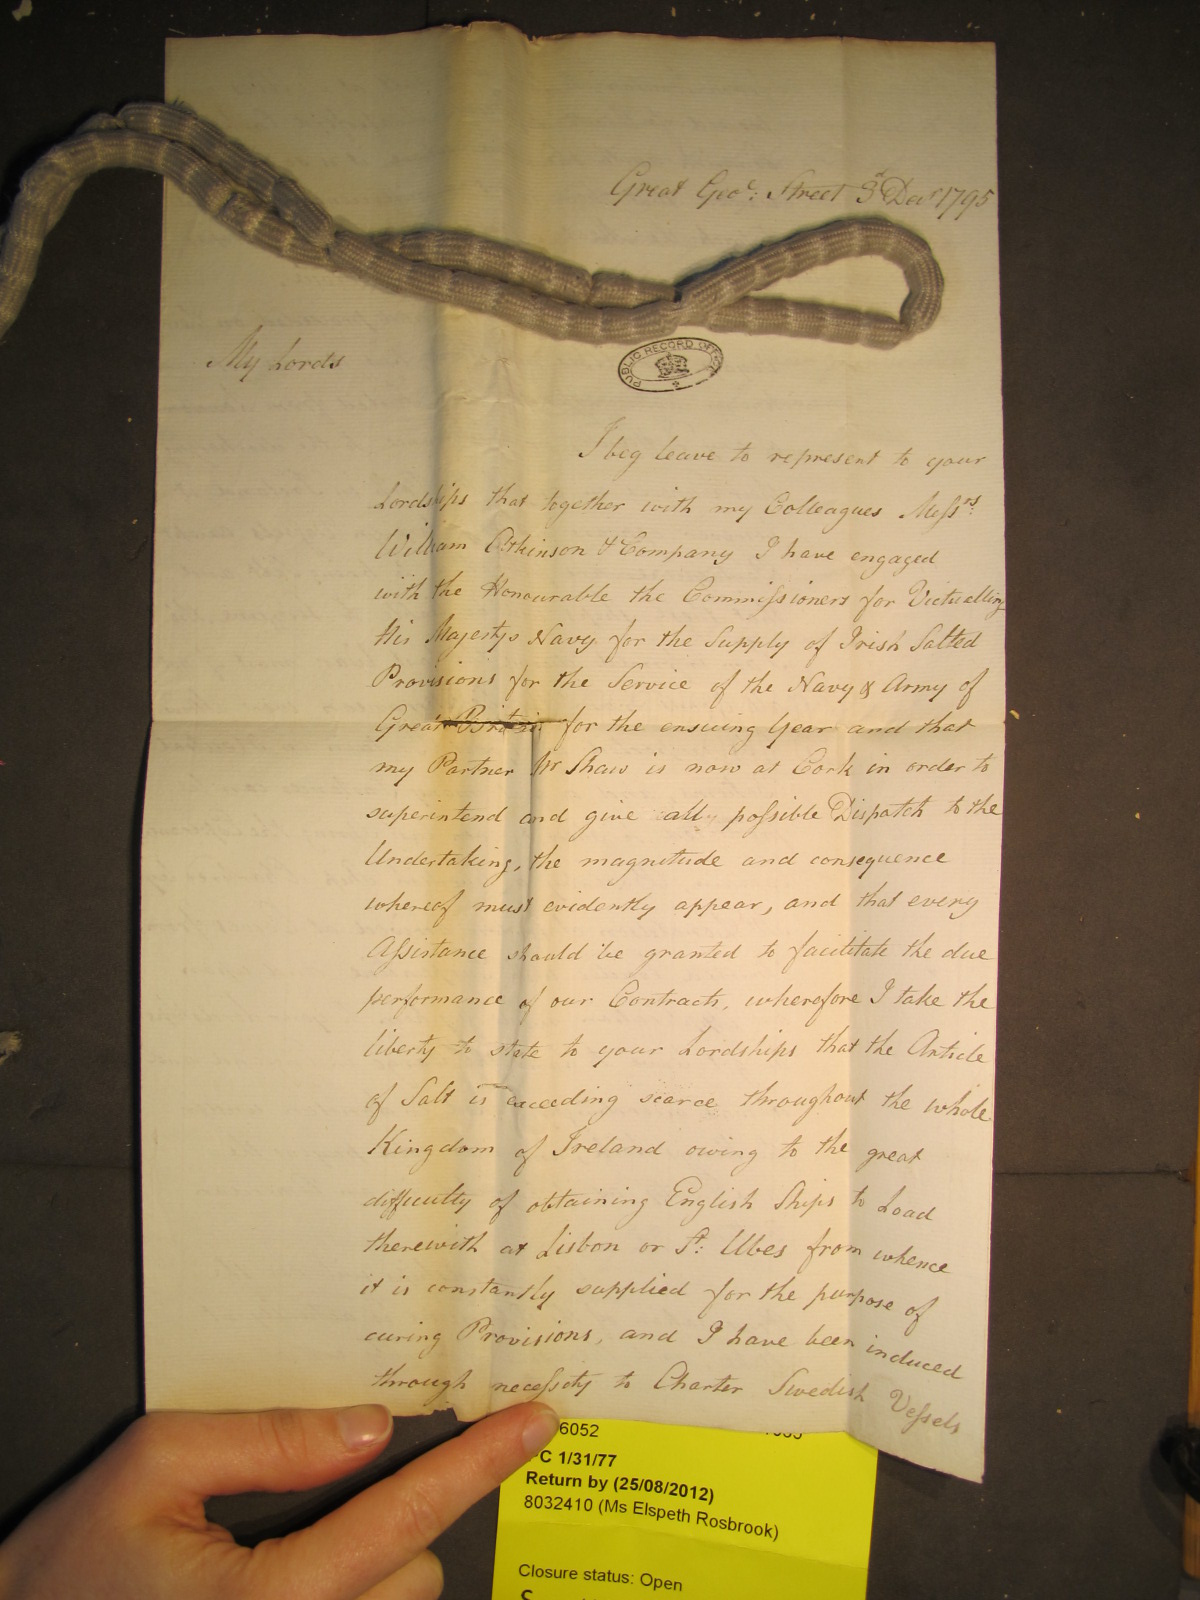 Great Geo.: Street 3d Decr 1795
PUBLIC RECORD OFFICE
My Lords
I beg leave to represent to your
Lordships that together with my Colleagues Messrs:
William Atkinson & Company I have engaged
with the Honourable the Commissioners for Victualling
His Majestys Navy for the Supply of Irish Salted
Provisions for the Service of the Navy & Army of
Great Britain for the ensuing Year and that
my Partner Mr Shaw is now at Cork in order to
superintend and give all possible Dispatch to the
Undertaking, the magnitude and consequence
whereof must evidently appear, and that every
Assistance should be granted to facilitate the due
performance of our Contracts, wherefore I take the
liberty to state to your Lordships that the Article
of Salt is exceeding scarce throughout the whole
Kingdom of Ireland owing to the great
difficulty of obtaining English Ships to Load
therewith at Lisbon or St: Ubes from whence
it is constantly supplied for the purpose of
curing Provisions, and I have been induced
through necessity to Charter Swedish Vessels
6052
PC 1/31/77
Return by (25/08/2012)
8032410 (Ms Elspeth Rosbrook)
Closure status: Open